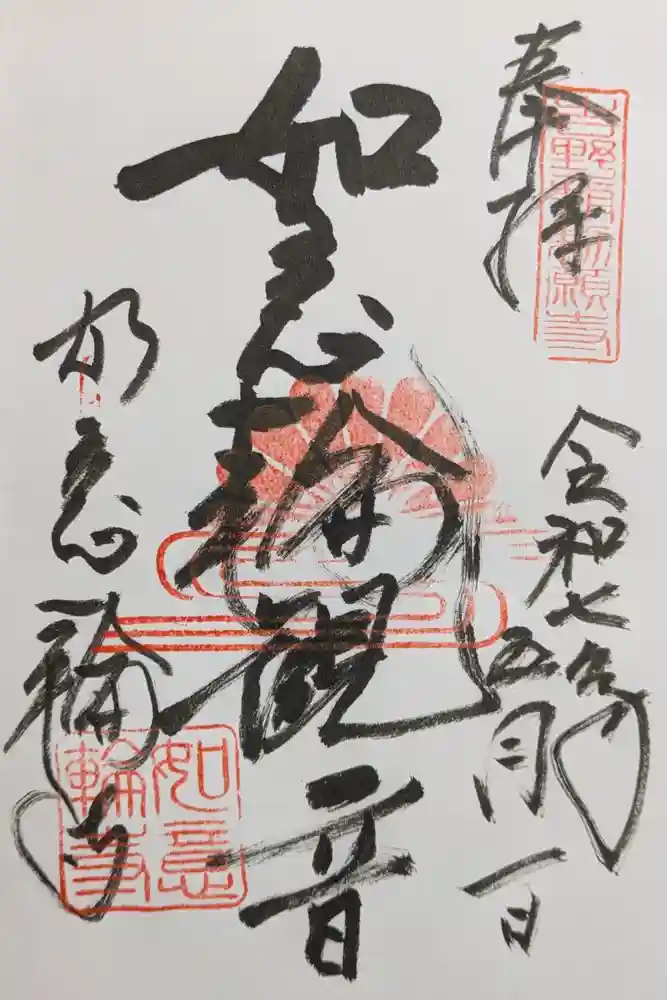 奉拝
吉野朝勅願寺
令和七年
五月一日
如意輪観音
如意輪寺
如意
輪寺